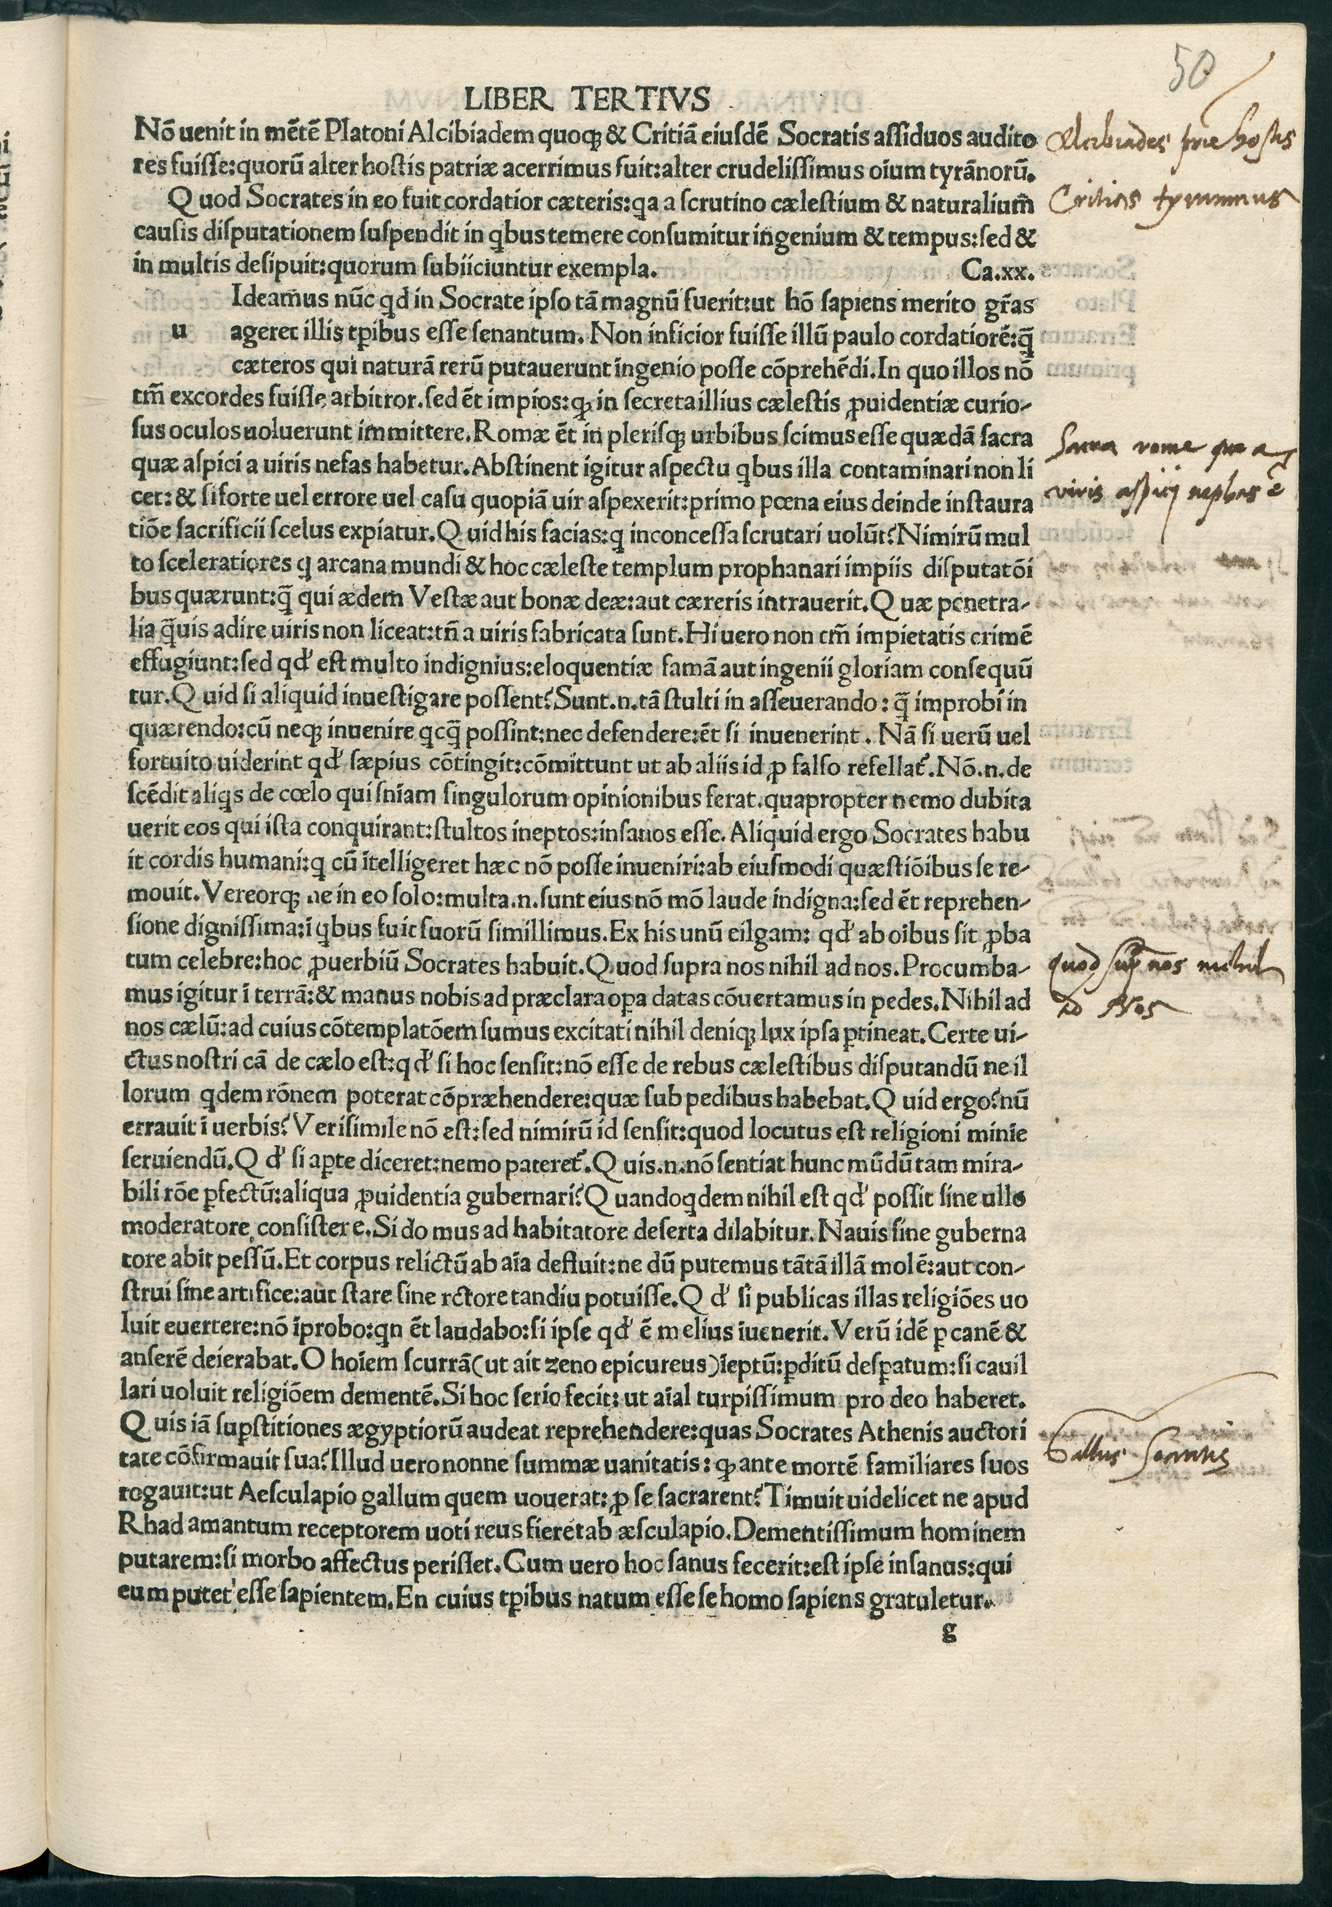 50
LIBER TERTIVS
Nō uenit in mētē Platoni Alcibiadem quoqꝫ & Critiā eiusdē Socratis assiduos audito
res fuisse:quorū alter hostis patriæ acerrimus fuit:alter crudelissimus oium tyrānorū.
Quod Socrates in eo fuit cordatior cæteris:qa a scrutino cælestium & naturalium̄
causis disputationem suspendit in qbus temere consumitur ingenium & tempus:sed &
in multis desipuit:quorum subiiciuntur exempla. Ca.xx.
Ideamus nūc qd in Socrate ipso tā magnū fuerit:ut hō sapiens merito gr̄as
u ageret illis tꝑibus esse senantum. Non inficior fuisse illū paulo cordatiorē:q̄
cæteros qui naturā rerū putauerunt ingenio posse cōprehēdi.In quo illos nō
tm̄ excordes fuisse arbitror.sed ēt impios:qꝫ in secreta illius cælestis ꝓuidentiæ curio-
sus oculos uoluerunt immittere.Romæ ēt in plerisqꝫ urbibus scimus esse quædā sacra
quæ aspici a uiris nefas habetur.Abstinent igitur aspectu qbus illa contaminari non li
cet:& si forte uel errore uel casu quopiā uir aspexerit:primo pœna eius deinde instaura
tiōe sacrificii scelus expiatur.Quid his facias:q inconcessa scrutari uolūt?Nimirū mul
to sceleratiores q arcana mundi & hoc cæleste templum prophanari impiis disputatōi
bus quærunt:q̄ qui ædem Vestæ aut bonæ deæ:aut cæreris intrauerit.Quæ penetra-
lia q̄uis adire uiris non liceat:tn̄ a uiris fabricata sunt.Hi uero non tm̄ impietatis crimē
effugiunt:sed qd' est multo indignius:eloquentiæ famā aut ingenii gloriam consequū
tur.Quid si aliquid inuestigare possent?Sunt.n.tā stulti in asseuerando:q̄ improbi in
quærendo:cū neqꝫ inuenire qcq̄ possint:nec defendere:ēt si inuenerint. Nā si uerū uel
fortuito uiderint qd' sæpius cōtingit:cōmittunt ut ab aliis id ꝓ falso refellat᷑.Nō.n.de
scēdit aliqs de cœlo qui sn̄iam singulorum opinionibus ferat.quapropter nemo dubita
uerit eos qui ista conquirant:stultos ineptos:insanos esse.Aliquid ergo Socrates habu
it cordis humani:q cū ītelligeret hæc nō posse inueniri:ab eiusmodi quæstiōibus se re-
mouit.Vereorqꝫ ne in eo solo:multa.n.sunt eius nō mō laude indigna:sed ēt reprehen-
sione dignissima:ī qbus fuit suorū simillimus.Ex his unū eilgam: qd' ab oibus sit ꝓba
tum celebre:hoc ꝓuerbiū Socrates habuit.Quod supra nos nihil ad nos.Procumba-
mus igitur ī terrā:& manus nobis ad præclara oꝑa datas cōuertamus in pedes.Nihil ad
nos cælū:ad cuius cōtemplatōem sumus excitati nihil deniqꝫ lux ipsa ꝑtineat.Certe ui-
ctus nostri cā de cælo est:qd' si hoc sensit:nō esse de rebus cælestibus disputandū ne il
lorum qdem rōnem poterat cōpræhendere:quæ sub pedibus habebat.Quid ergo?nū
errauit ī uerbis?Verisimile nō est:sed nimirū id sensit:quod locutus est religioni minīe
seruiendū.Qd' si aꝑte diceret:nemo pateret᷑.Quis.n.nō sentiat hunc mūdū tam mira-
bili rōe ꝑfectū:aliqua ꝓuidentia gubernari?Quandoqdem nihil est qd' possit sine ullo
moderatore consistere.Si do mus ad habitatore deserta dilabitur.Nauis sine guberna
tore abit pessū.Et corpus relictū ab aīa defluit:ne dū putemus tātā illā molē:aut con-
strui sine artifice:aut stare sine rctore tandiu potuisse.Qd' si publicas illas religiōes uo
luit euertere:nō īprobo:qn ēt laudabo:si ipse qd' ē melius īuenerit.Verū idē ꝑ canē &
anserē deierabat.O hoīem scurrā(ut ait zeno epicureus)īeptū:ꝑditū desꝑatum:si cauil
lari uoluit religiōem dementē.Si hoc serio fecit:ut aīal turpissimum pro deo haberet.
Quis iā suꝑstitiones ægyptiorū audeat reprehendere:quas Socrates Athenis auctori
tate cōfirmauit sua?Illud uero nonne summæ uanitatis:qꝫ ante mortē familiares suos
rogauit:ut Aesculapio gallum quem uouerat:ꝓ se sacrarent?Timuit uidelicet ne apud
Rhadamantum receptorem uoti reus fieret ab æsculapio.Dementissimum hominem
putarem:si morbo affectus perisset.Cum uero hoc sanus fecerit:est ipse insanus:qui
eum putet esse sapientem.En cuius tꝑibus natum esse se homo sapiens gratuletur.
g
Alcibiades p̄rie hostis
Critias tyrannus
Sacra rome que a
viris aspicij nephas ē
quod sup̄ nos nichil
ad Nos
Gallus Socratis